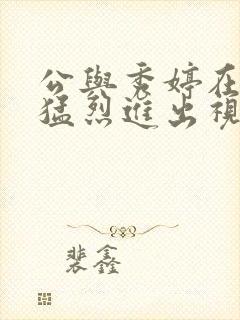 公與秀婷在
猛烈進出視
裴鑫